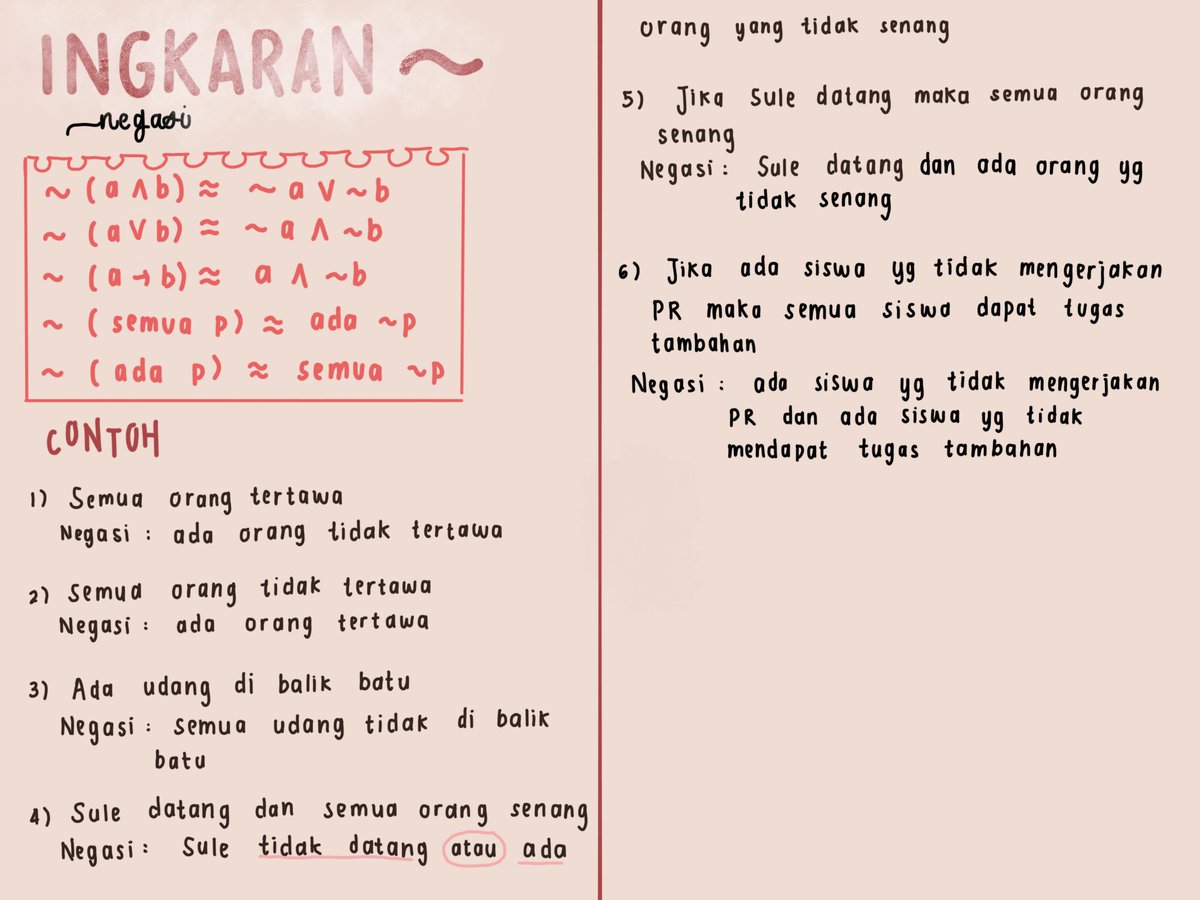 INGKARAN ~
negasi
~ (a ∧ b) ≈ ~ a ∨ ~b
~ (a ∨ b) ≈ ~ a ∧ ~b
~ (a → b) ≈ a ∧ ~b
~ ( semua p) ≈ ada ~p
~ ( ada p) ≈ semua ~p
CONTOH
1) Semua orang tertawa
Negasi : ada orang tidak tertawa
2) Semua orang tidak tertawa
Negasi : ada orang tertawa
3) Ada udang di balik batu
Negasi : semua udang tidak di balik
batu
4) Sule datang dan semua orang senang
Negasi : Sule tidak datang atau ada
orang yang tidak senang
5) Jika Sule datang maka semua orang
senang
Negasi : Sule datang dan ada orang yg
tidak senang
6) Jika ada siswa yg tidak mengerjakan
PR maka semua siswa dapat tugas
tambahan
Negasi : ada siswa yg tidak mengerjakan
PR dan ada siswa yg tidak
mendapat tugas tambahan